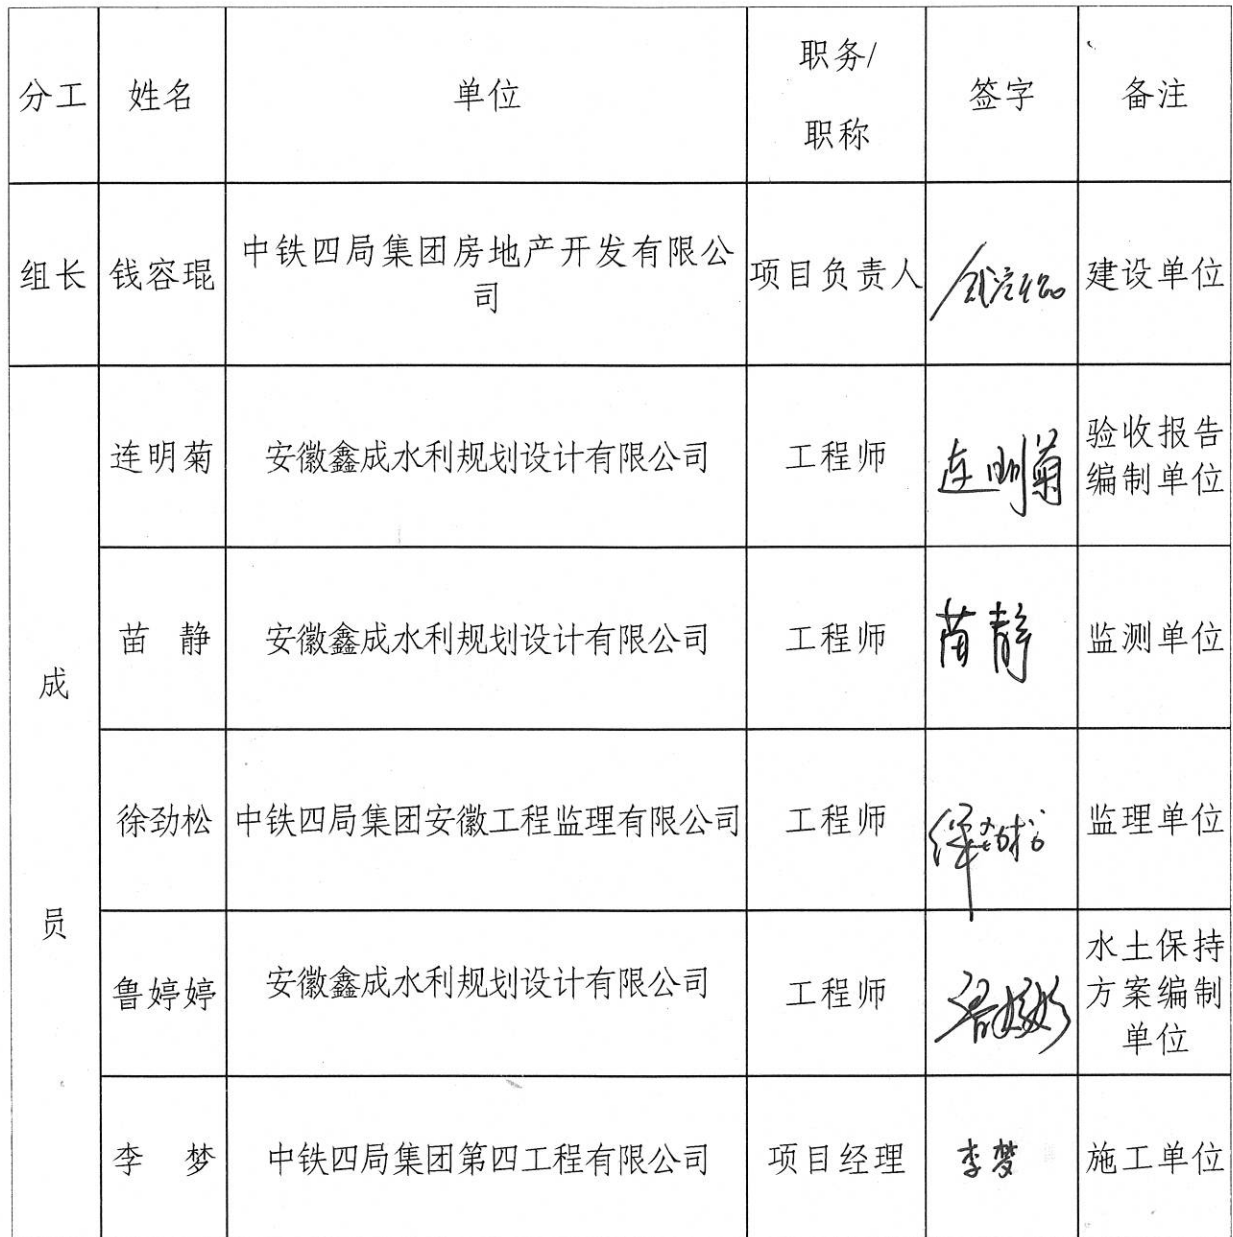 分工 姓名 单位 职务/职称 签字 备注
组长 钱容琨 中铁四局集团房地产开发有限公司 项目负责人 钱容琨 建设单位
成员 连明菊 安徽鑫成水利规划设计有限公司 工程师 连明菊 验收报告编制单位
苗 静 安徽鑫成水利规划设计有限公司 工程师 苗静 监测单位
徐劲松 中铁四局集团安徽工程监理有限公司 工程师 徐劲松 监理单位
鲁婷婷 安徽鑫成水利规划设计有限公司 工程师 鲁婷婷 水土保持方案编制单位
李 梦 中铁四局集团第四工程有限公司 项目经理 李梦 施工单位